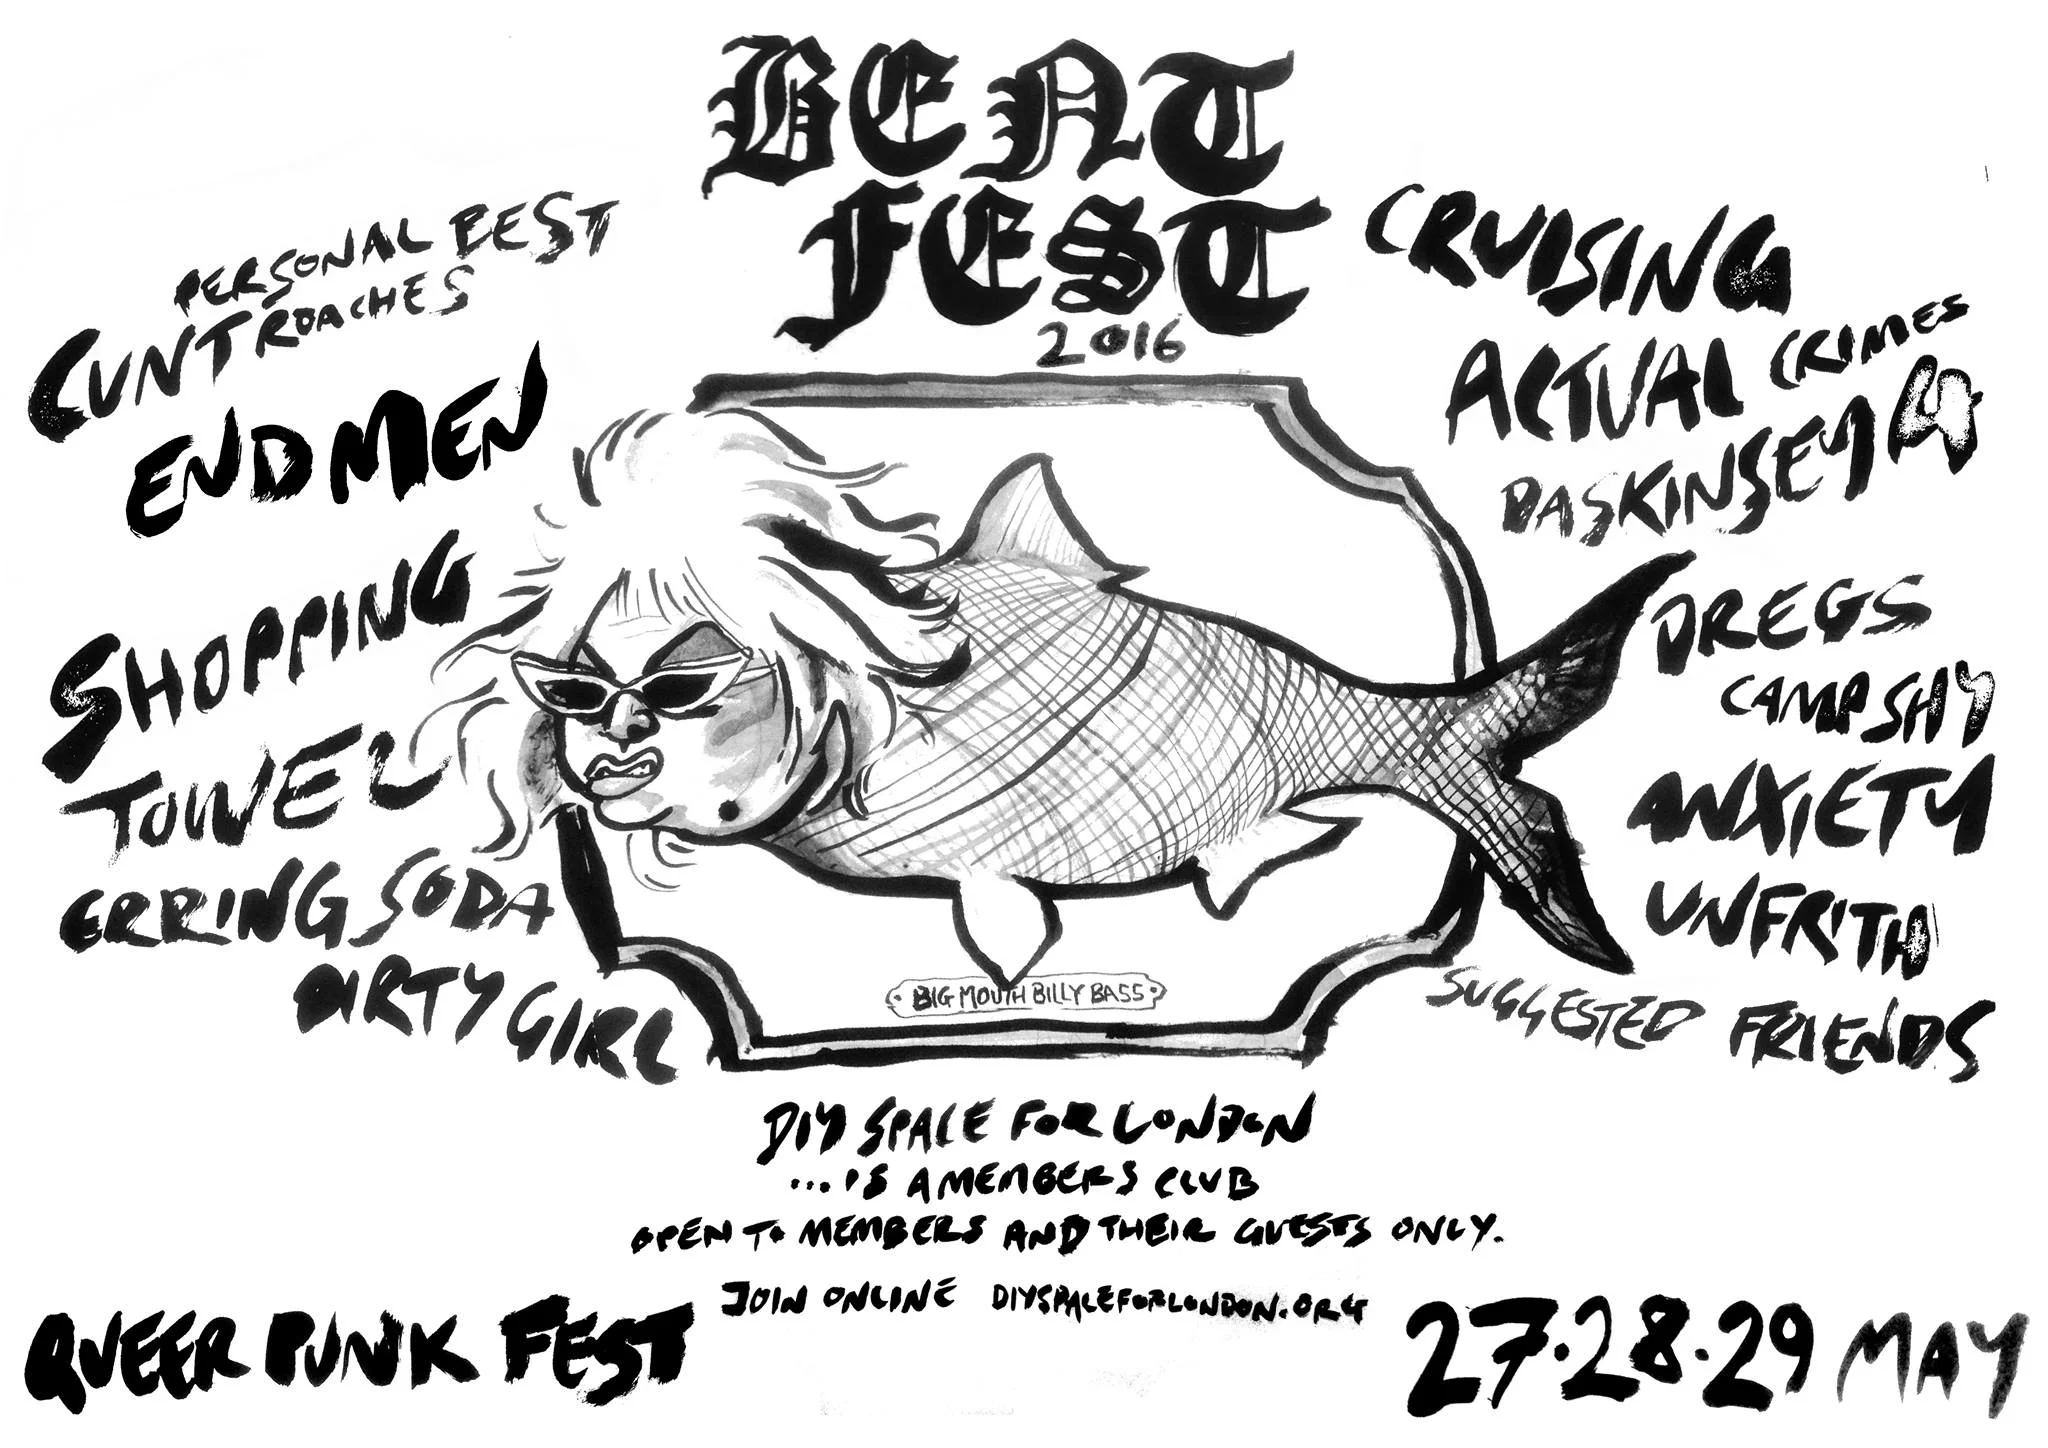 BENT
FEST
2016
PERSONAL BEST
CUNTROACHES
END MEN
SHOPPING
TOWEL
ERRING SODA
DIRTY GIRL
CRUISING
ACTUAL CRIMES
DASKINSEY4
DREGS
CAMP SHY
ANXIETY
UNFRITH
SUGGESTED FRIENDS
BIG MOUTH BILLY BASS
DIY SPACE FOR LONDON
...IS A MEMBERS CLUB
OPEN TO MEMBERS AND THEIR GUESTS ONLY.
JOIN ONLINE DIYSPACEFORLONDON.ORG
QUEER PUNK FEST
27.28.29 MAY